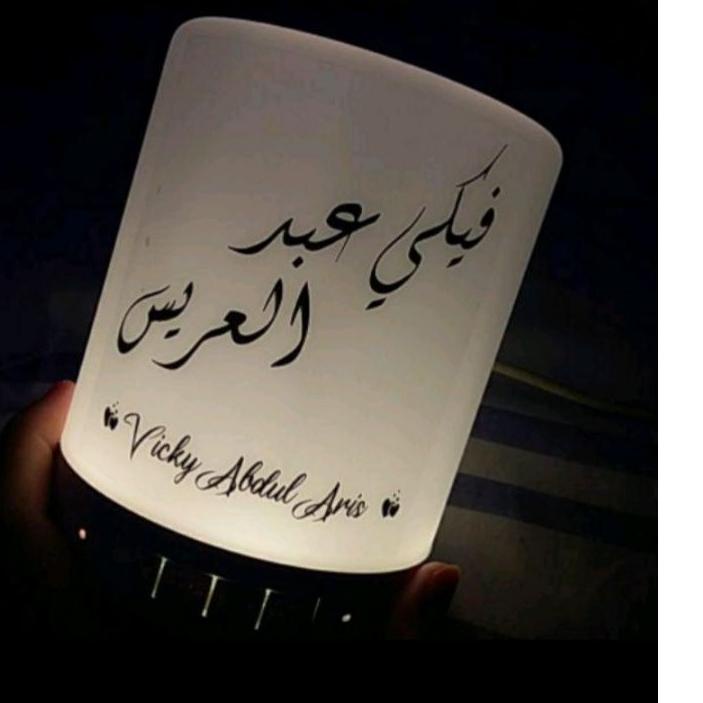 فيكي عبد
العريس
Vicky Abdul Aris